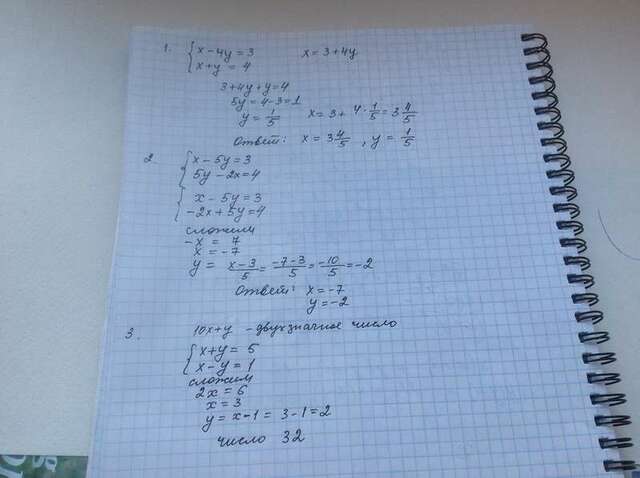 1. { x - 4y = 3    x = 3 + 4y
x + y = 4
3 + 4y + y = 4
5y = 4 - 3 = 1
y = 1/5    x = 3 + 4 · 1/5 = 3 4/5
Ответ: x = 3 4/5, y = 1/5
2. { x - 5y = 3
5y - 2x = 4
{ x - 5y = 3
-2x + 5y = 4
сложим
-x = 7
x = -7
y = (x-3)/5 = (-7-3)/5 = -10/5 = -2
Ответ: x = -7
y = -2
3. 10x + y - двухзначное число
{ x + y = 5
x - y = 1
сложим
2x = 6
x = 3
y = x - 1 = 3 - 1 = 2
число 32